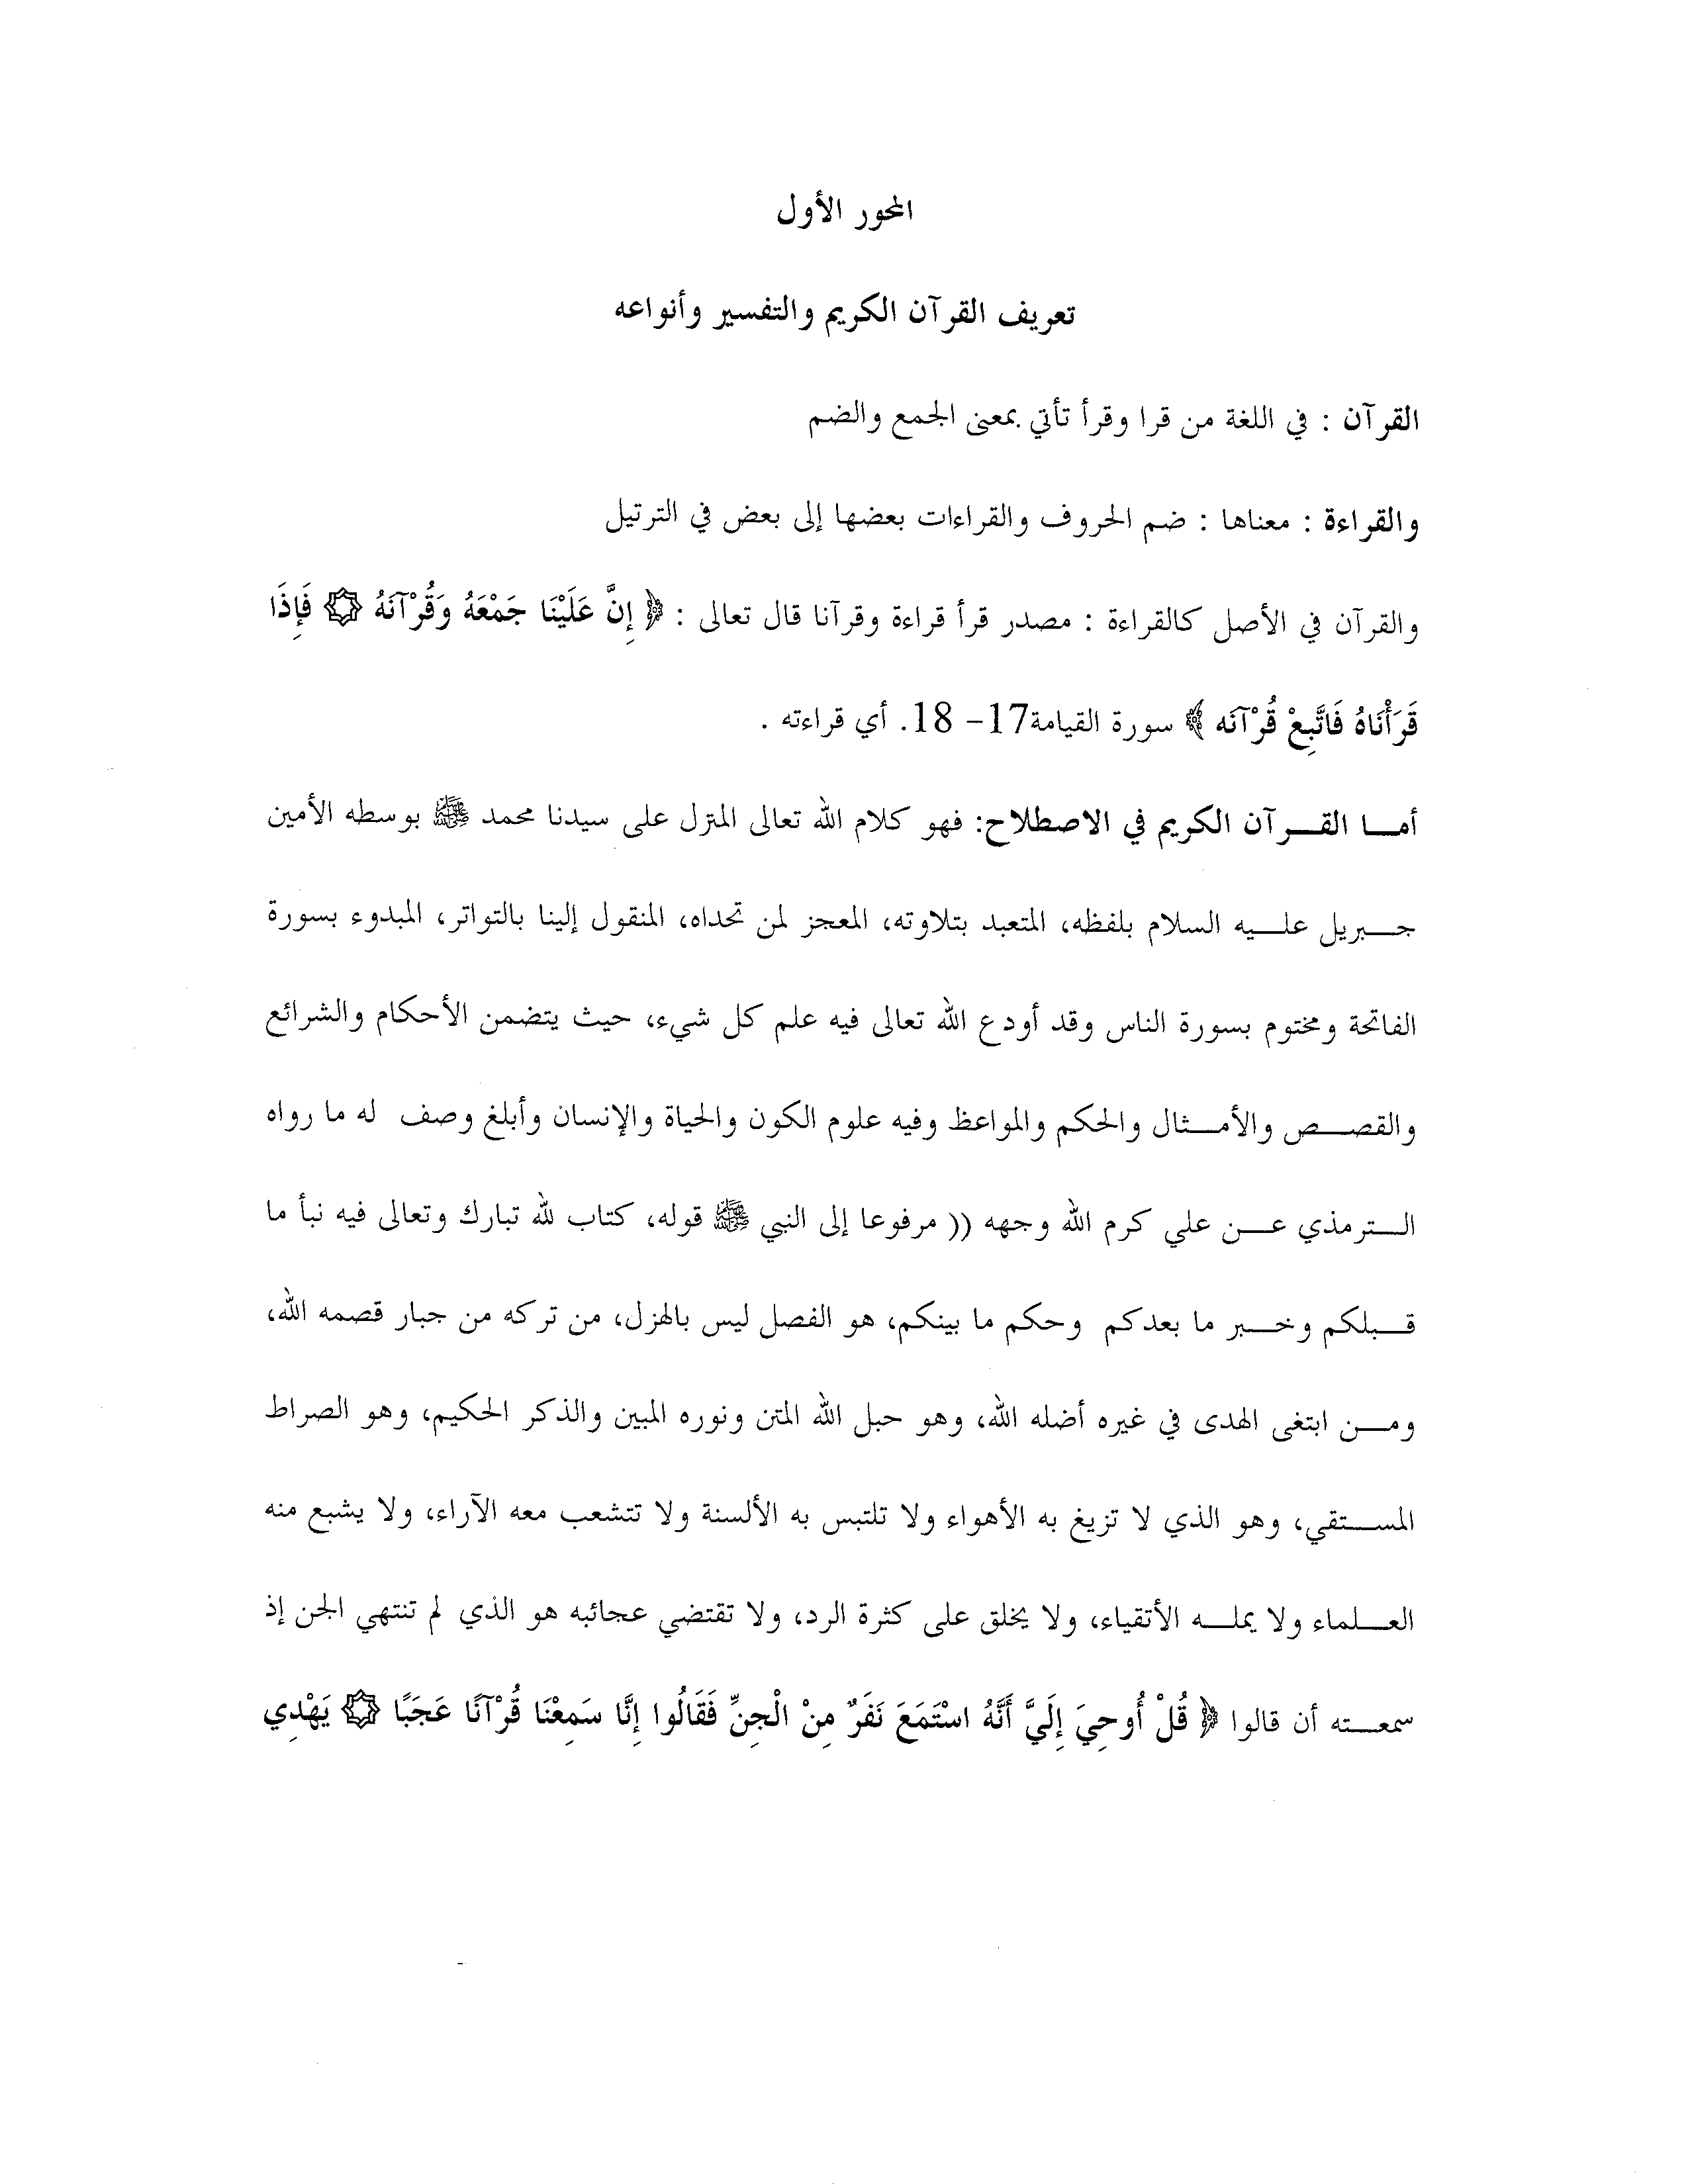 المحور الأول
تعريف القرآن الكريم والتفسير وأنواعه
القرآن : في اللغة من قرا وقرأ تأتي بمعنى الجمع والضم
والقراءة : معناها : ضم الحروف والقراءات بعضها إلى بعض في الترتيل
والقرآن في الأصل كالقراءة : مصدر قرأ قراءة وقرآنا قال تعالى : ﴿ إِنَّ عَلَيْنَا جَمْعَهُ وَقُرْآنَهُ ۞ فَإِذَا
قَرَأْنَاهُ فَاتَّبِعْ قُرْآنَه ﴾ سورة القيامة17- 18. أي قراءته .
أما القرآن الكريم في الاصطلاح: فهو كلام الله تعالى المنزل على سيدنا محمد ﷺ بوسطه الأمين
جبريل عليه السلام بلفظه، المتعبد بتلاوته، المعجز لمن تحداه، المنقول إلينا بالتواتر، المبدوء بسورة
الفاتحة ومختوم بسورة الناس وقد أودع الله تعالى فيه علم كل شيء، حيث يتضمن الأحكام والشرائع
والقصص والأمثال والحكم والمواعظ وفيه علوم الكون والحياة والإنسان وأبلغ وصف له ما رواه
الترمذي عن علي كرم الله وجهه (( مرفوعا إلى النبي ﷺ قوله، كتاب لله تبارك وتعالى فيه نبأ ما
قبلكم وخبر ما بعدكم وحكم ما بينكم، هو الفصل ليس بالهزل، من تركه من جبار قصمه الله،
ومن ابتغى الهدى في غيره أضله الله، وهو حبل الله المتن ونوره المبين والذكر الحكيم، وهو الصراط
المستقي، وهو الذي لا تزيغ به الأهواء ولا تلتبس به الألسنة ولا تتشعب معه الآراء، ولا يشبع منه
العلماء ولا يمله الأتقياء، ولا يخلق على كثرة الرد، ولا تقتضي عجائبه هو الذي لم تنتهي الجن إذ
سمعته أن قالوا ﴿ قُلْ أُوحِيَ إِلَيَّ أَنَّهُ اسْتَمَعَ نَفَرٌ مِنْ الْجِنِّ فَقَالُوا إِنَّا سَمِعْنَا قُرْآنًا عَجَبًا ۞ يَهْدِي